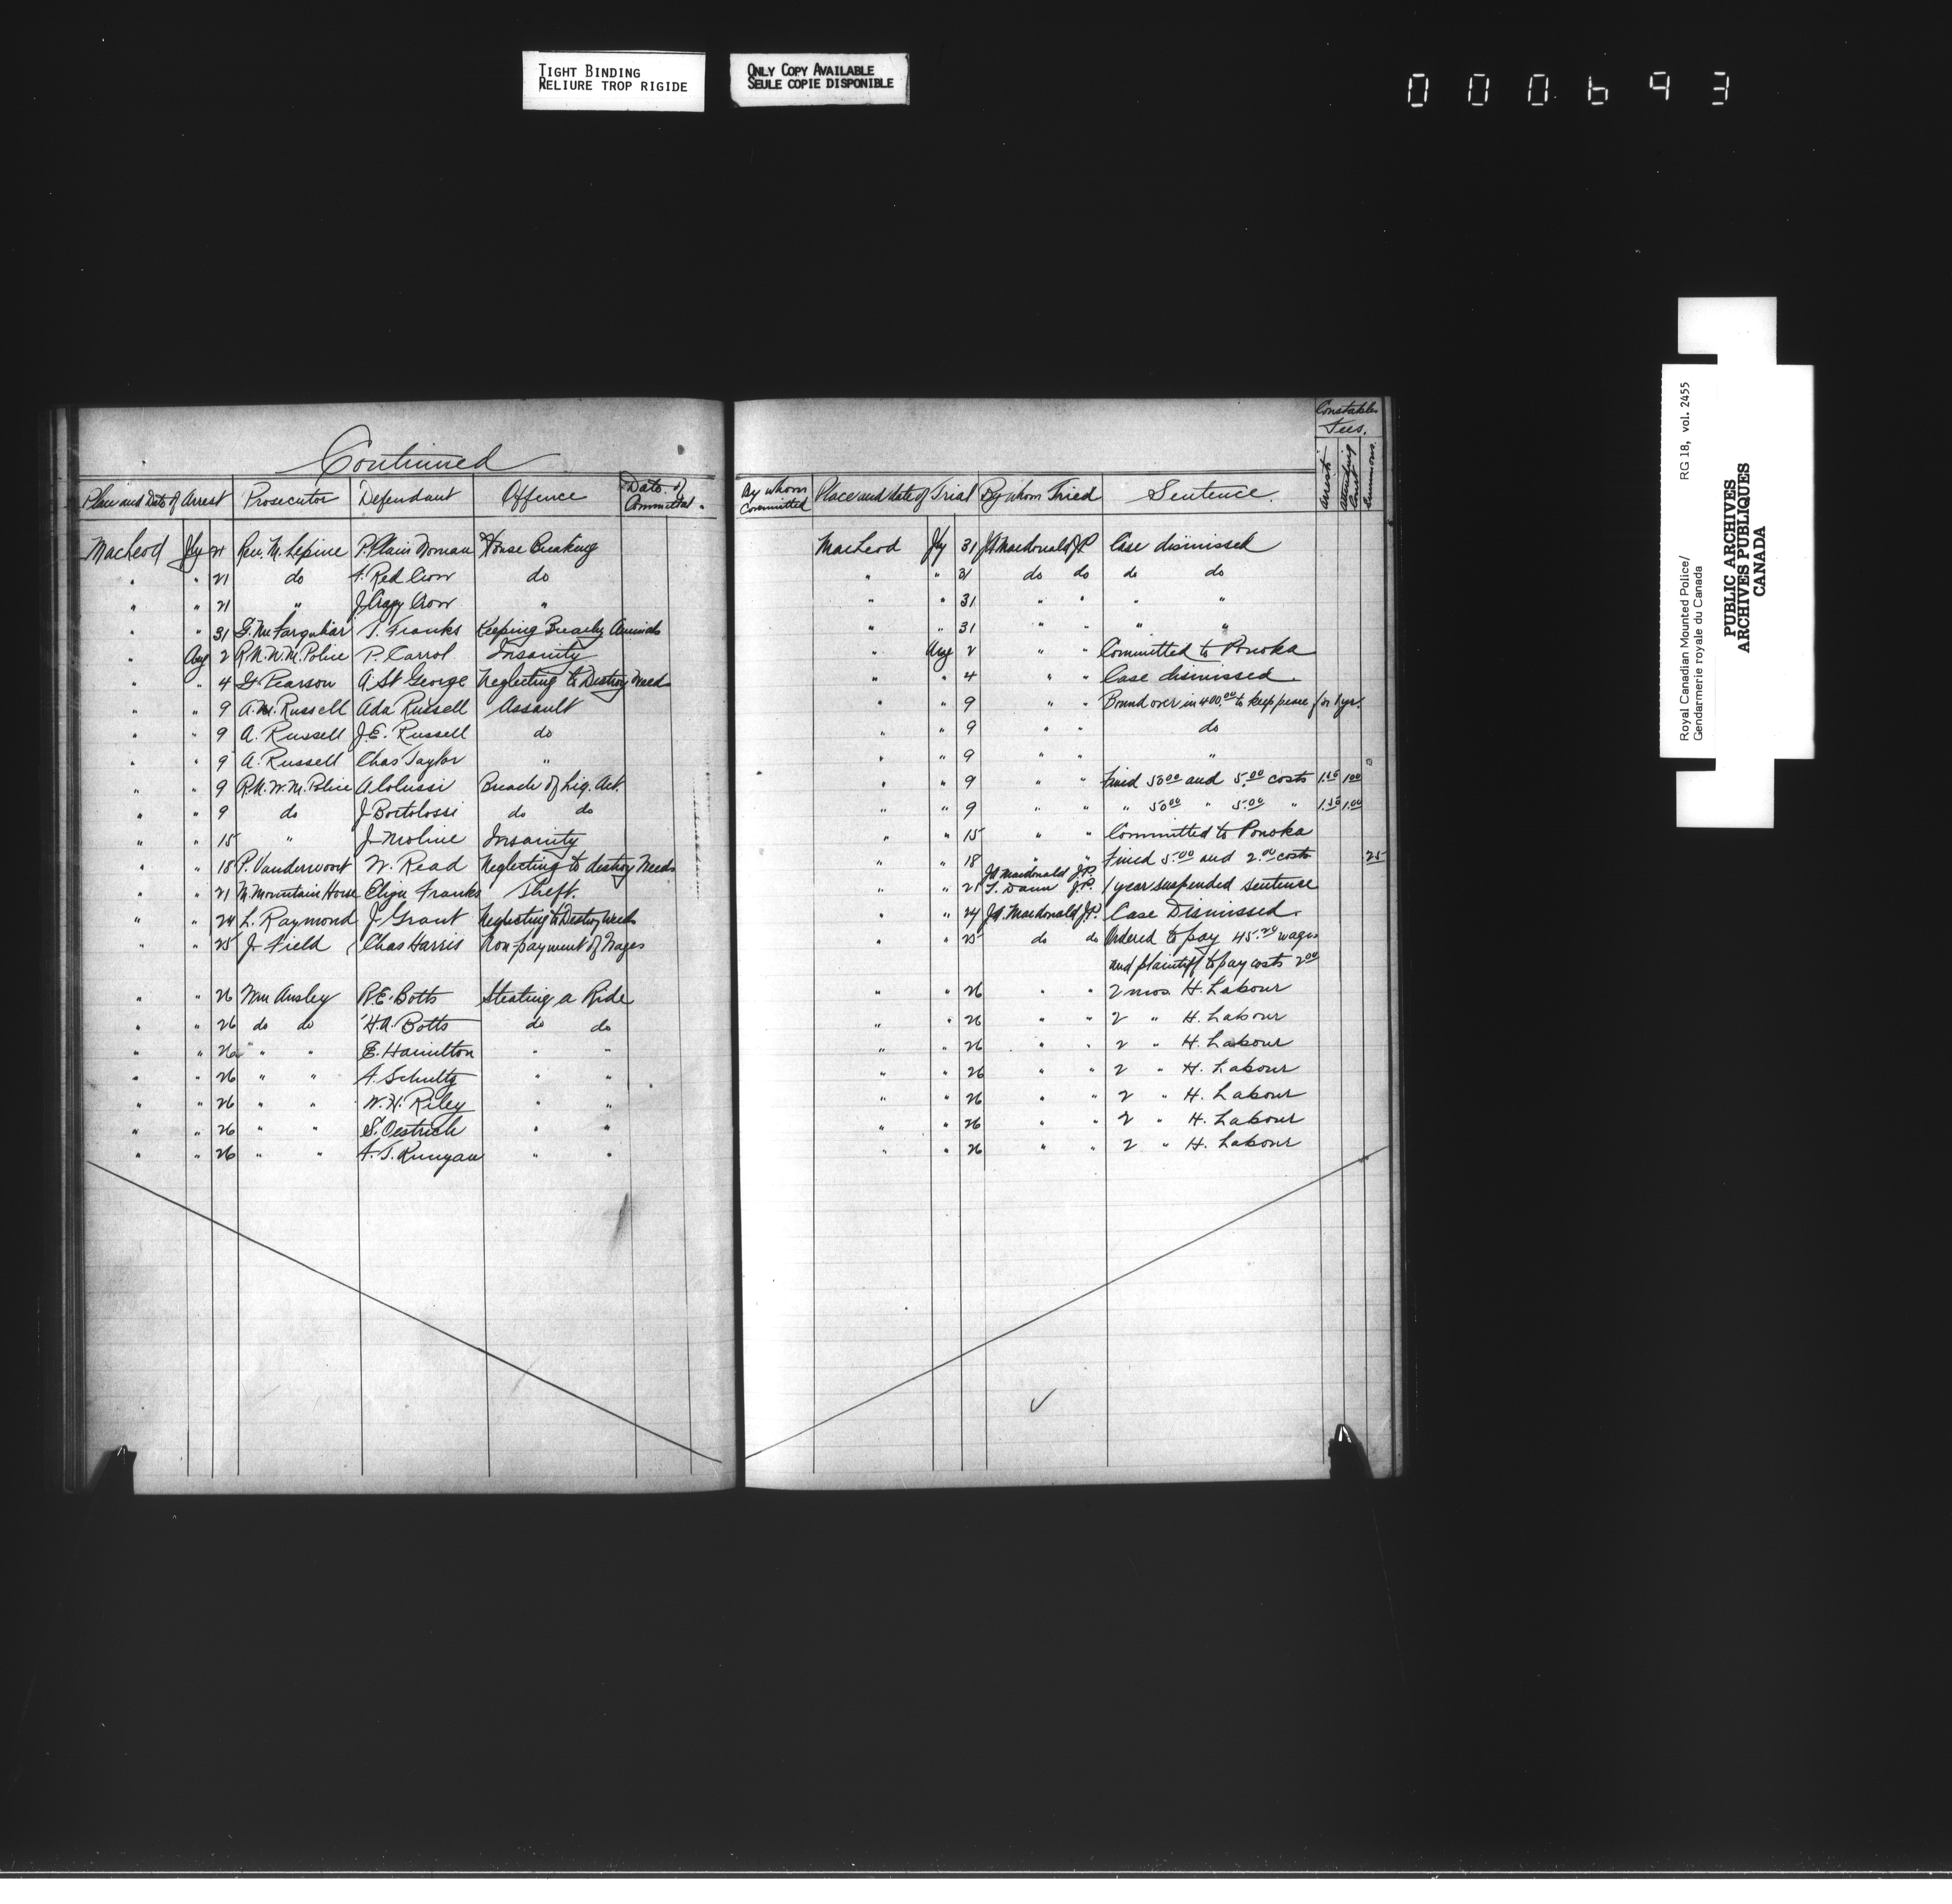 TIGHT BINDING
RELIURE TROP RIGIDE
ONLY COPY AVAILABLE
SEULE COPIE DISPONIBLE
000693
Royal Canadian Mounted Police/ RG 18, vol. 2455
Gendarmerie royale du Canada
PUBLIC ARCHIVES
ARCHIVES PUBLIQUES
CANADA
Continued
Place and Date of Arrest Prosecutor Defendant Offence Date of Committal.
Macleod Jly 21 Rev. M. Lepine P. Plain Woman House Breaking
" " 21 do F. Red Crow do
" " 21 " J Crazy Crow "
" " 31 G. McFarquhar T. Franks Keeping Breachy Animals
" Aug 2 R.N.W.M. Police P. Carrol Insanity
" " 4 G. Pearson A. St George Neglecting to Destroy Weeds
" " 9 A. M. Russell Ada Russell Assault
" " 9 A. Russell J.E. Russell do
" " 9 A. Russell Chas Taylor "
" " 9 R.N.W.M. Police A Colussi Breach of Liq. Act.
" " 9 do J Bortolossi do do
" " 15 " J. Moline Insanity
" " 18 P. Vandervoort W. Read Neglecting to destroy Weeds
" " 21 M. Mountain Horse Eliza Franks Theft.
" " 24 L. Raymond J. Grant Neglecting to Destroy Weeds
" " 25 J. Field Chas Harris Non payment of Wages
" " 26 Wm Ansley R.E. Botts Stealing a Ride
" " 26 do do H.A. Botts do do
" " 26 " " E. Hamilton " "
" " 26 " " A. Schultz " "
" " 26 " " W.H. Riley " "
" " 26 " " S. Oestrich " "
" " 26 " " A.T. Runyan " "
Constables
Fees.
By whom Committed Place and date of Trial By whom Tried Sentence. Arrests Attending Court Summons.
Macleod Jly 31 J.A. Macdonald J.P. Case dismissed
" " 31 do do do do
" " 31 " " " "
" " 31 " " " "
" Aug 2 " " Committed to Ponoka
" " 4 " " Case dismissed.
" " 9 " " Bound over in 400.00 to keep peace for 1 yr.
" " 9 " " do
" " 9 " " "
" " 9 " " Fined 50.00 and 5.00 costs 1.50 1.00
" " 9 " " " 50.00 " 5.00 " 1.50 1.00
" " 15 " " Committed to Ponoka
" " 18 " " Fined 5.00 and 2.00 costs 25
J.A. Macdonald J.P.
" " 21 T. Dann J.P. 1 year suspended sentence
" " 24 J.A. Macdonald J.P. Case Dismissed.
" " 25 do do Ordered to pay 45.20 wages
and plaintiff to pay costs 2.00
" " 26 " " 2 mos. H. Labour
" " 26 " " 2 " H. Labour
" " 26 " " 2 " H. Labour
" " 26 " " 2 " H. Labour
" " 26 " " 2 " H. Labour
" " 26 " " 2 " H. Labour
" " 26 " " 2 " H. Labour